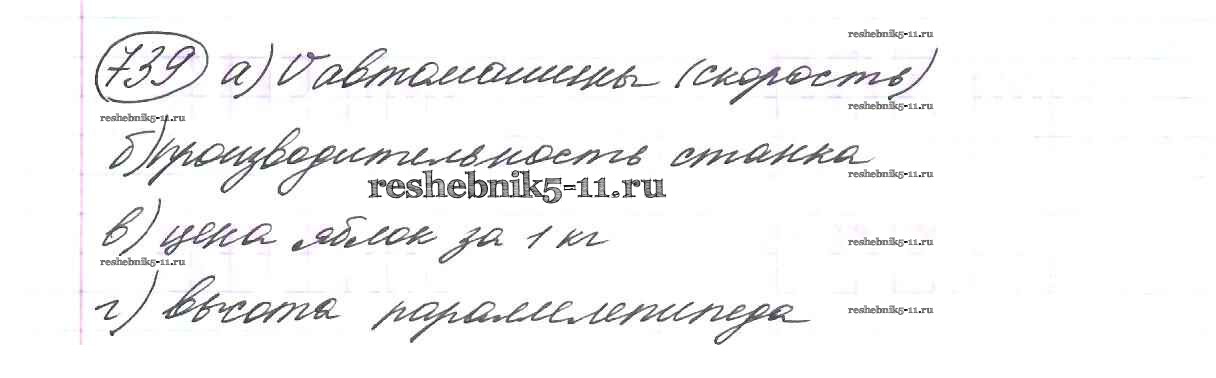 reshebnik5-11.ru
739 а) V автомашины (скорость)
reshebnik5-11.ru
reshebnik5-11.ru
б) производительность станка
reshebnik5-11.ru
reshebnik5-11.ru
в) цена яблок за 1 кг
reshebnik5-11.ru
reshebnik5-11.ru
г) высота параллелепипеда
reshebnik5-11.ru